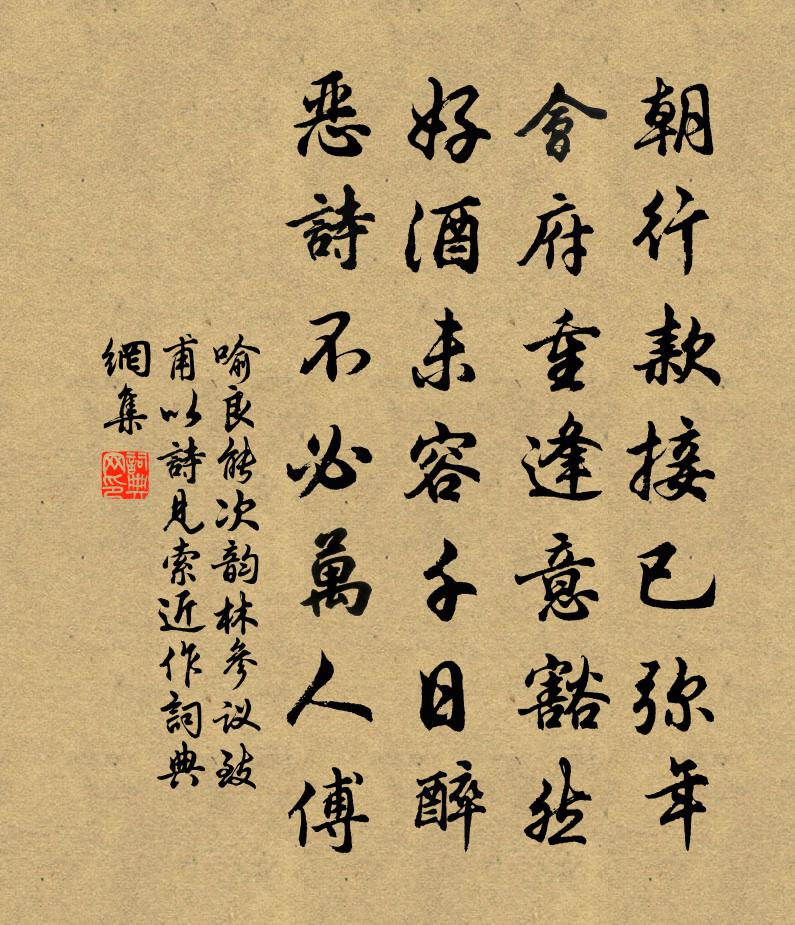 朝行款接已弥年
會府重逢意豁然
好酒未容千日醉
恶詩不必萬人傅
喻良能次韵林参议致
甫以詩見索近作詞典
網集
詞典网印